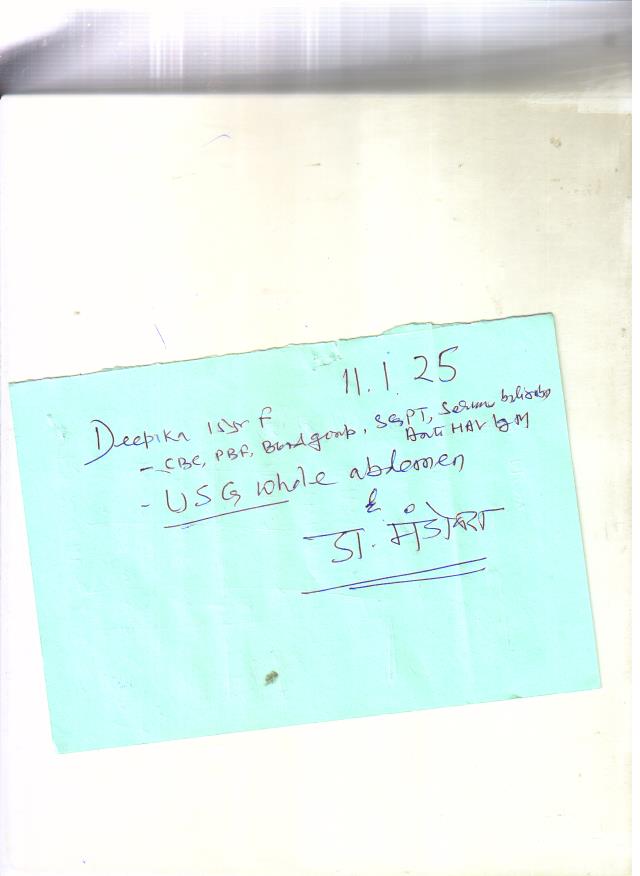 11.1.25
Deepika 15yr f
- CBC, PBF, Blood group, SGPT, Serum bilirubin
Anti HAV IgM
- USG whole abdomen
डा. मंडोवरा